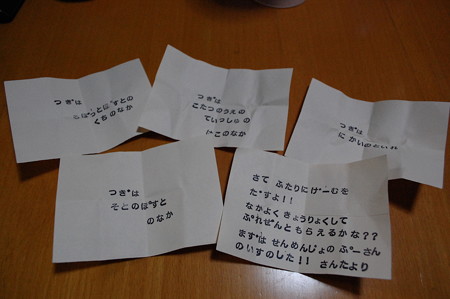 つぎは
ろぼっとにすとの
くちのなか
つぎは
こたつのうえの
てぃっしゅの
はこのなか
つぎは
にかいのといれ
つぎは
そとのぽすと
のなか
さて ふたりにげーむを
だすよ!!
なかよくきょうりょくして
ぷれぜんともらえるかな??
まずは せんめんじょの ぷーさん
のいすのした!! さんたより